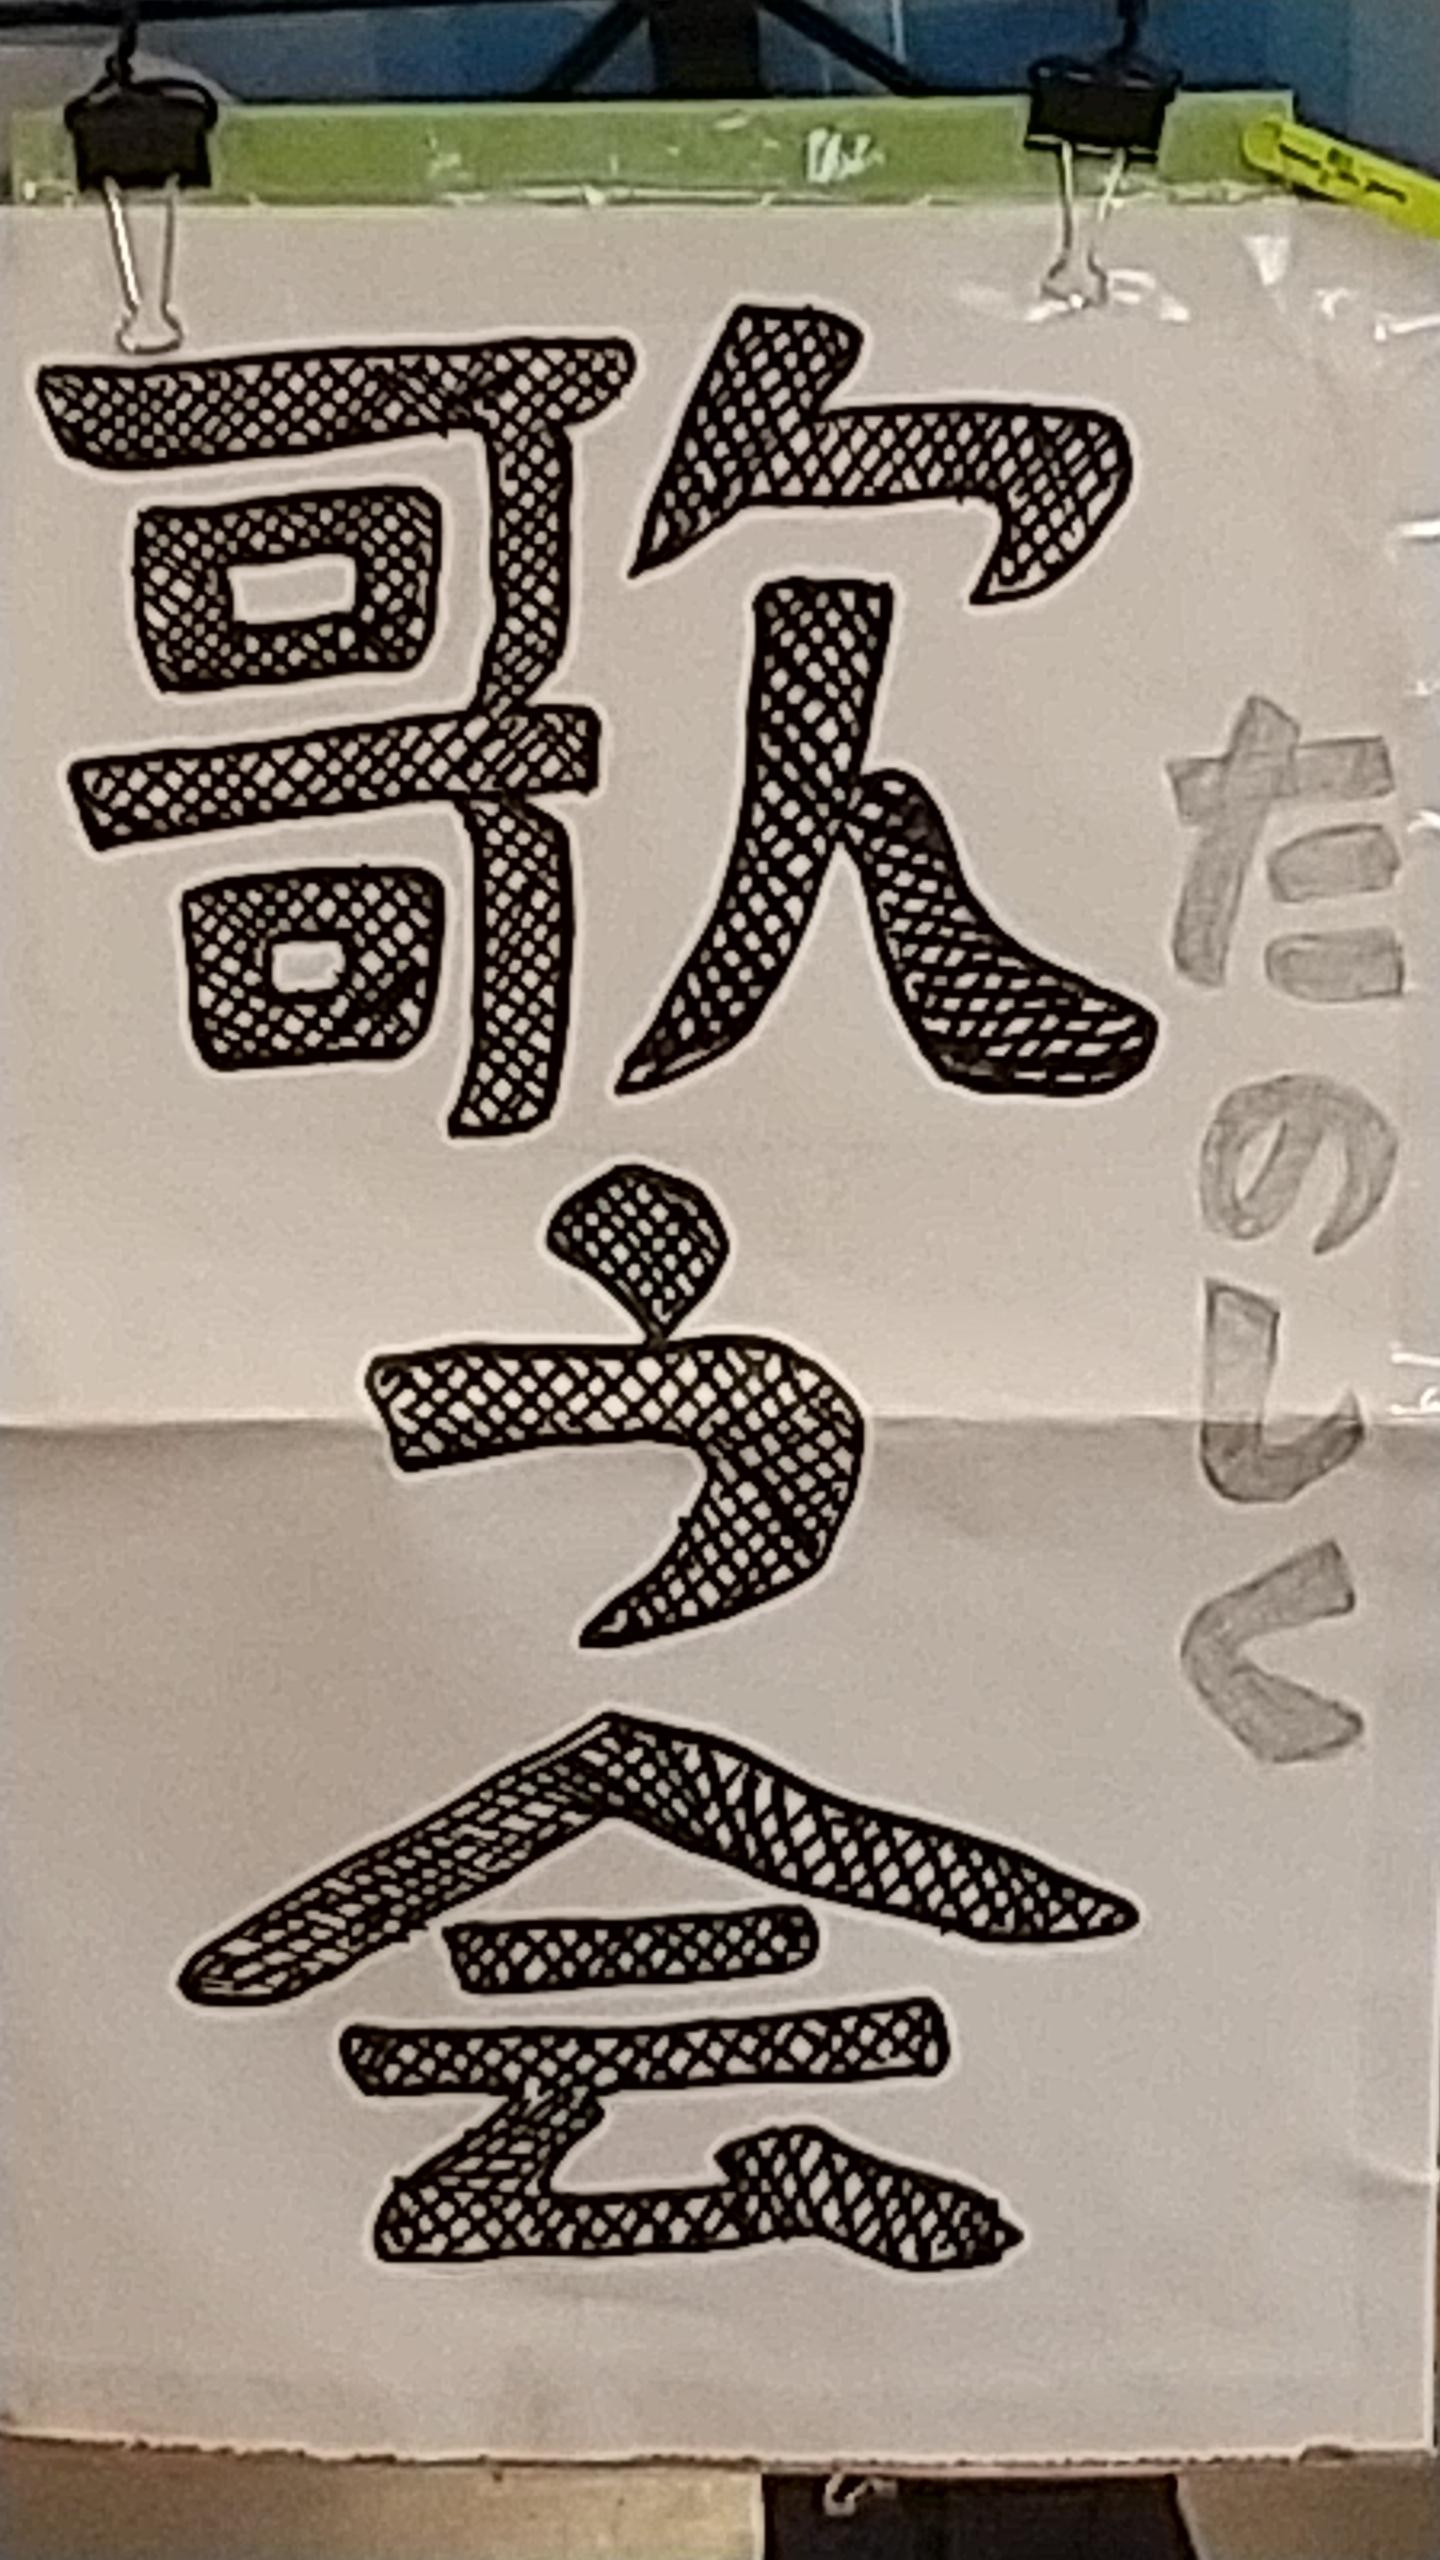 たのしい
歌う会